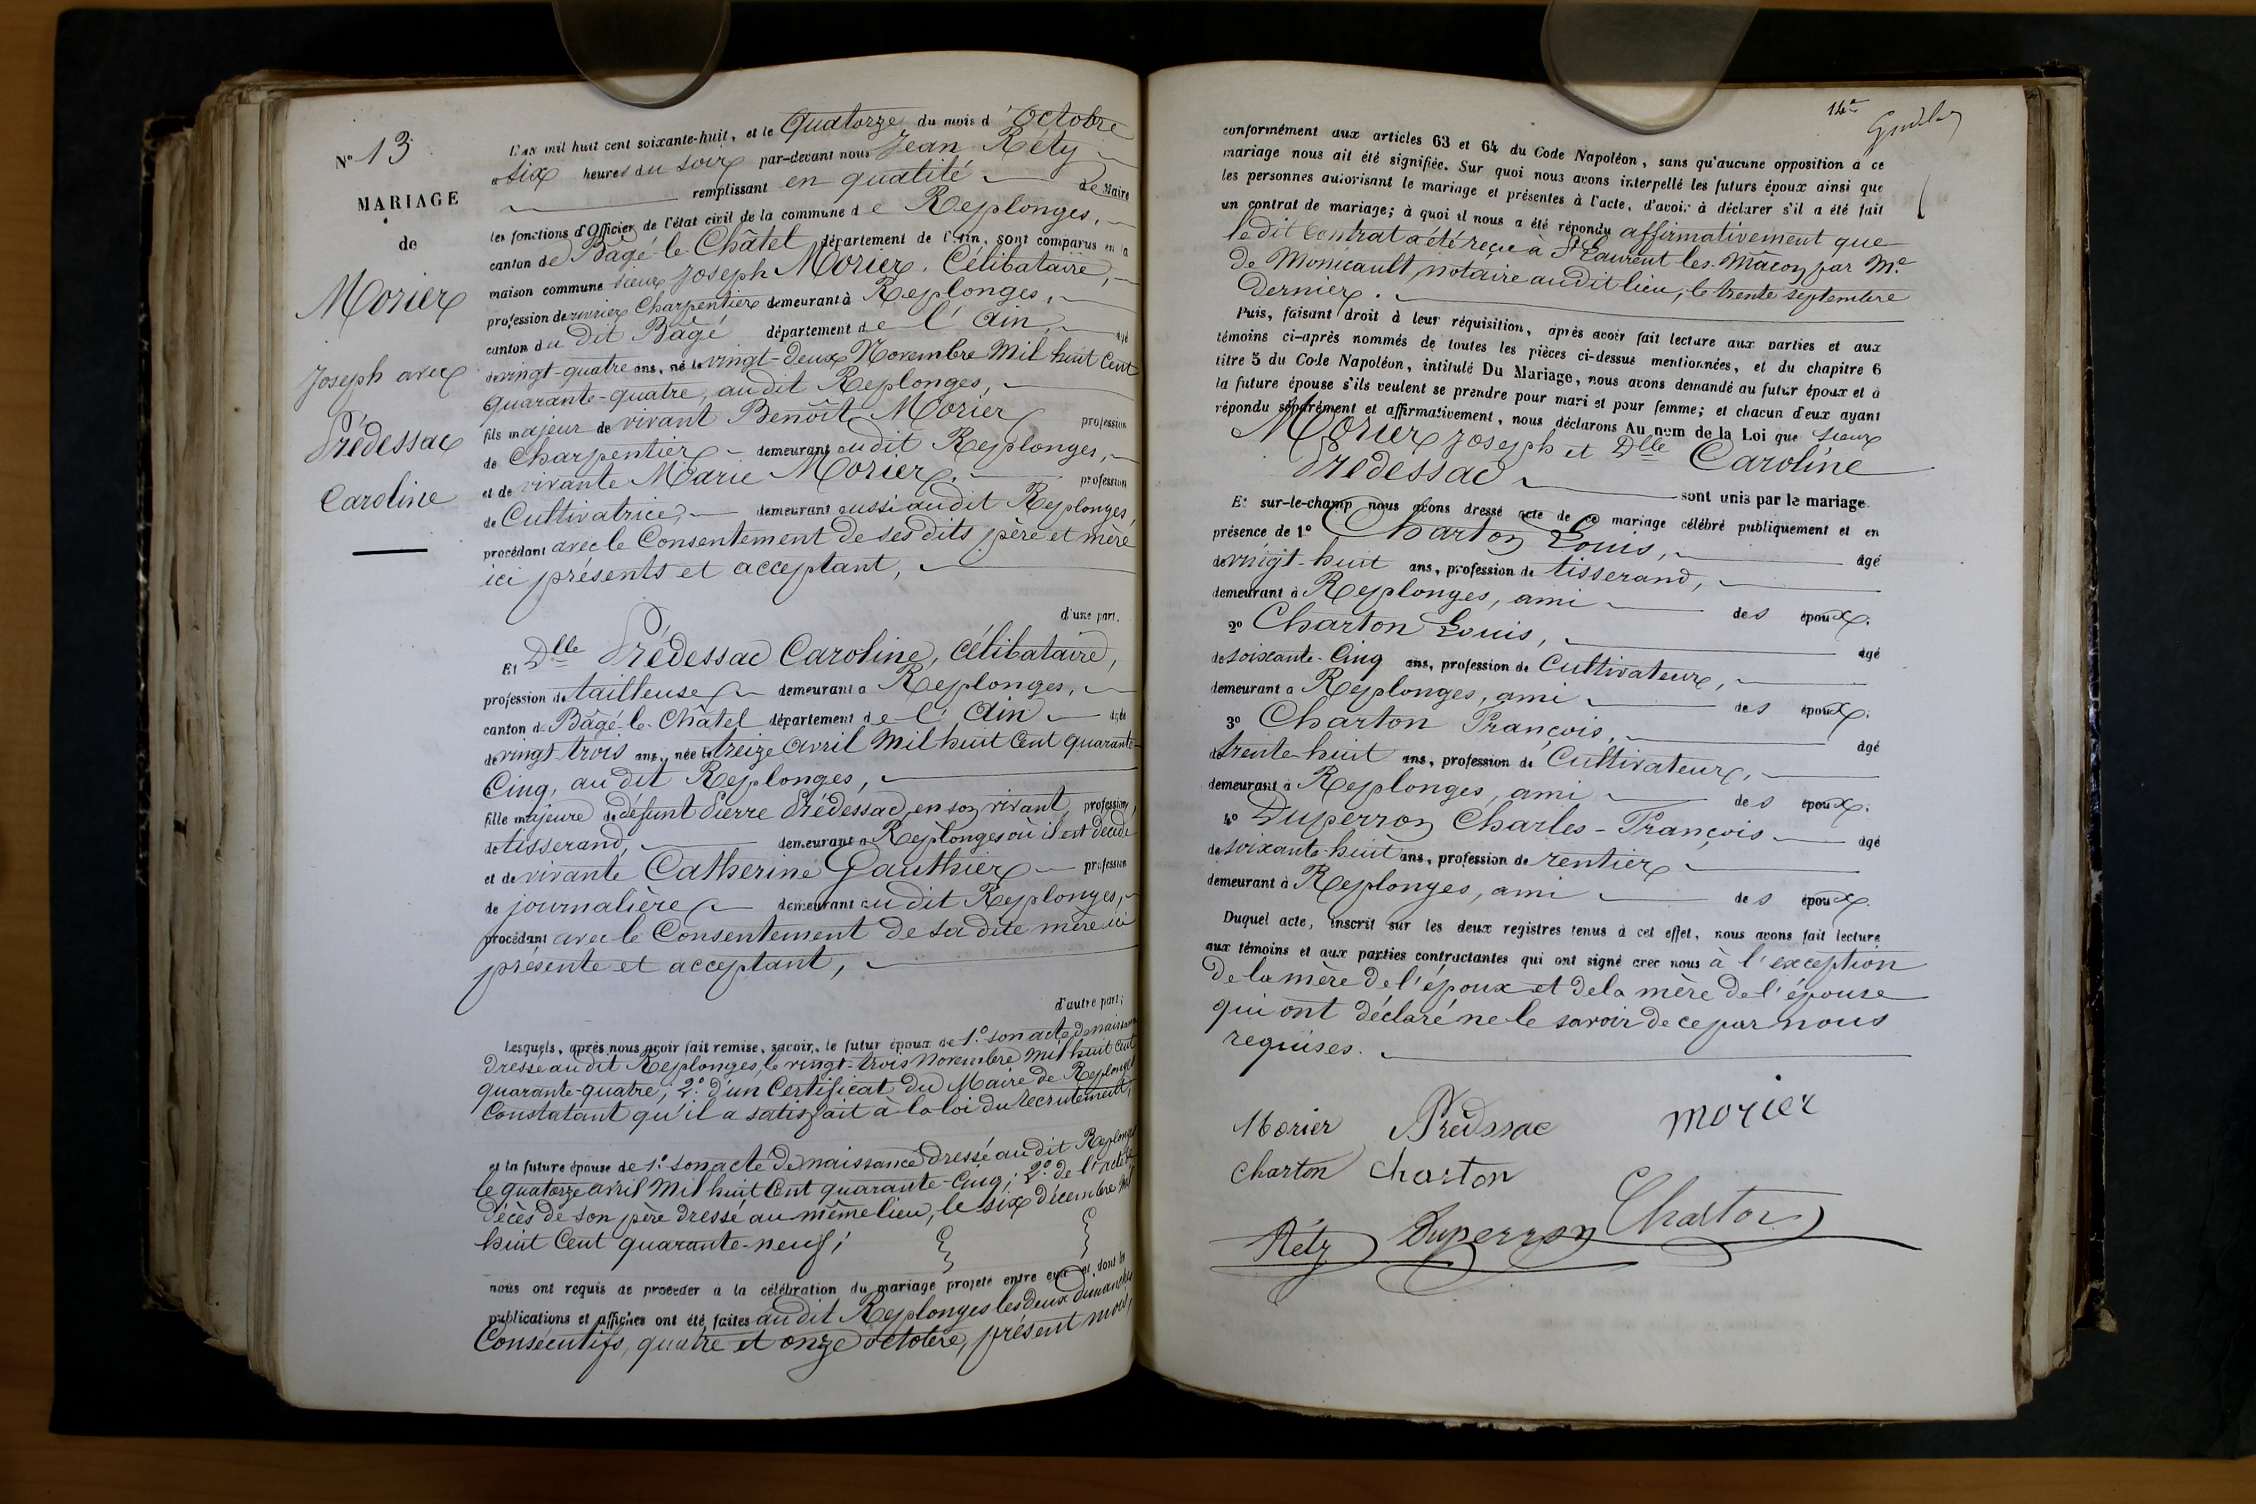 N° 13
MARIAGE
de
Morier
Joseph avec
Prédessac
Caroline
L'an mil huit cent soixante-huit, et le Quatorze du mois d'Octobre
à six heures du soir par-devant nous Jean Réty
remplissant en qualité de Maire
les fonctions d'Officier de l'état civil de la commune de Replonges,
canton de Bâgé-le-Châtel département de l'Ain, sont comparus en la
maison commune sieur Joseph Morier, Célibataire,
profession de ouvrier Charpentier demeurant à Replonges,
canton du dit Bagé département de l'Ain, agé
de vingt-quatre ans, né le vingt-deux Novembre Mil huit Cent
quarante-quatre, audit Replonges,
fils majeur de vivant Benoît Morier profession
de Charpentier demeurant audit Replonges,
et de vivante Marie Morier, profession
de Cultivatrice, demeurant aussi audit Replonges,
procédant avec le Consentement de ses dits père et mère
ici présents et acceptant,
d'une part.
Et Dlle Prédessac Caroline, célibataire,
profession de tailleuse demeurant à Replonges,
canton de Bâgé-le-Châtel département de l'Ain agée
de vingt-trois ans, née le treize avril Mil huit Cent quarante-
Cinq, audit Replonges,
fille majeure de défunt Pierre Prédessac, en son vivant, profession
de tisserand, demeurant à Replonges où il est décédé
et de vivante Catherine Gauthier profession
de journalière demeurant audit Replonges,
procédant avec le Consentement de sa dite mère ici
présente et acceptant,
d'autre part;
Lesquels, après nous avoir fait remise, savoir, le futur époux de 1.° son acte de naissance
dressé audit Replonges, le vingt-trois Novembre Mil huit Cent
quarante-quatre; 2.° d'un Certificat du Maire de Replonges
Constatant qu'il a satisfait à la loi du recrutement,
et la future épouse de 1.° son acte de naissance dressé audit Replonges
le quatorze avril Mil huit Cent quarante-Cinq; 2.° de l'acte de
décès de son père dressé au même lieu, le six décembre Mil
huit Cent quarante-neuf;
nous ont requis de procéder à la célébration du mariage projeté entre eux et dont les
publications et affiches ont été faites audit Replonges les deux dimanches
Consécutifs, quatre et onze octobre, présent mois,
14e
conformément aux articles 63 et 64 du Code Napoléon, sans qu'aucune opposition à ce
mariage nous ait été signifiée. Sur quoi nous avons interpellé les futurs époux ainsi que
les personnes autorisant le mariage et présentes à l'acte, d'avoir à déclarer s'il a été fait
un contrat de mariage; à quoi il nous a été répondu affirmativement que
ledit Contrat a été reçu à St Laurent les-Mâcon par Me
de Monicault, notaire audit lieu, le trente septembre
dernier.
Puis, faisant droit à leur réquisition, après avoir fait lecture aux parties et aux
témoins ci-après nommés de toutes les pièces ci-dessus mentionnées, et du chapitre 6
titre 5 du Code Napoléon, intitulé Du Mariage, nous avons demandé au futur époux et à
la future épouse s'ils veulent se prendre pour mari et pour femme; et chacun d'eux ayant
répondu séparément et affirmativement, nous déclarons Au nom de la Loi que sieur
Morier Joseph et Dlle Caroline
Prédessac sont unis par le mariage
Et sur-le-champ nous avons dressé acte de ce mariage célébré publiquement et en
présence de 1° Charton Louis, agé
de vingt-huit ans, profession de tisserand,
demeurant à Replonges, ami des époux.
2° Charton Louis, agé
de soixante-Cinq ans, profession de Cultivateur,
demeurant à Replonges, ami des époux.
3° Charton François, agé
de trente-huit ans, profession de Cultivateur,
demeurant à Replonges, ami des époux.
4° Duperron Charles-François agé
de soixante-huit ans, profession de rentier
demeurant à Replonges, ami des époux.
Duquel acte, inscrit sur les deux registres tenus à cet effet, nous avons fait lecture
aux témoins et aux parties contractantes qui ont signé avec nous à l'exception
de la mère de l'époux et de la mère de l'épouse
qui ont déclaré ne le savoir de ce par nous
requises.
Morier Prédssac morier
Charton Charton
Réty Duperron Charton